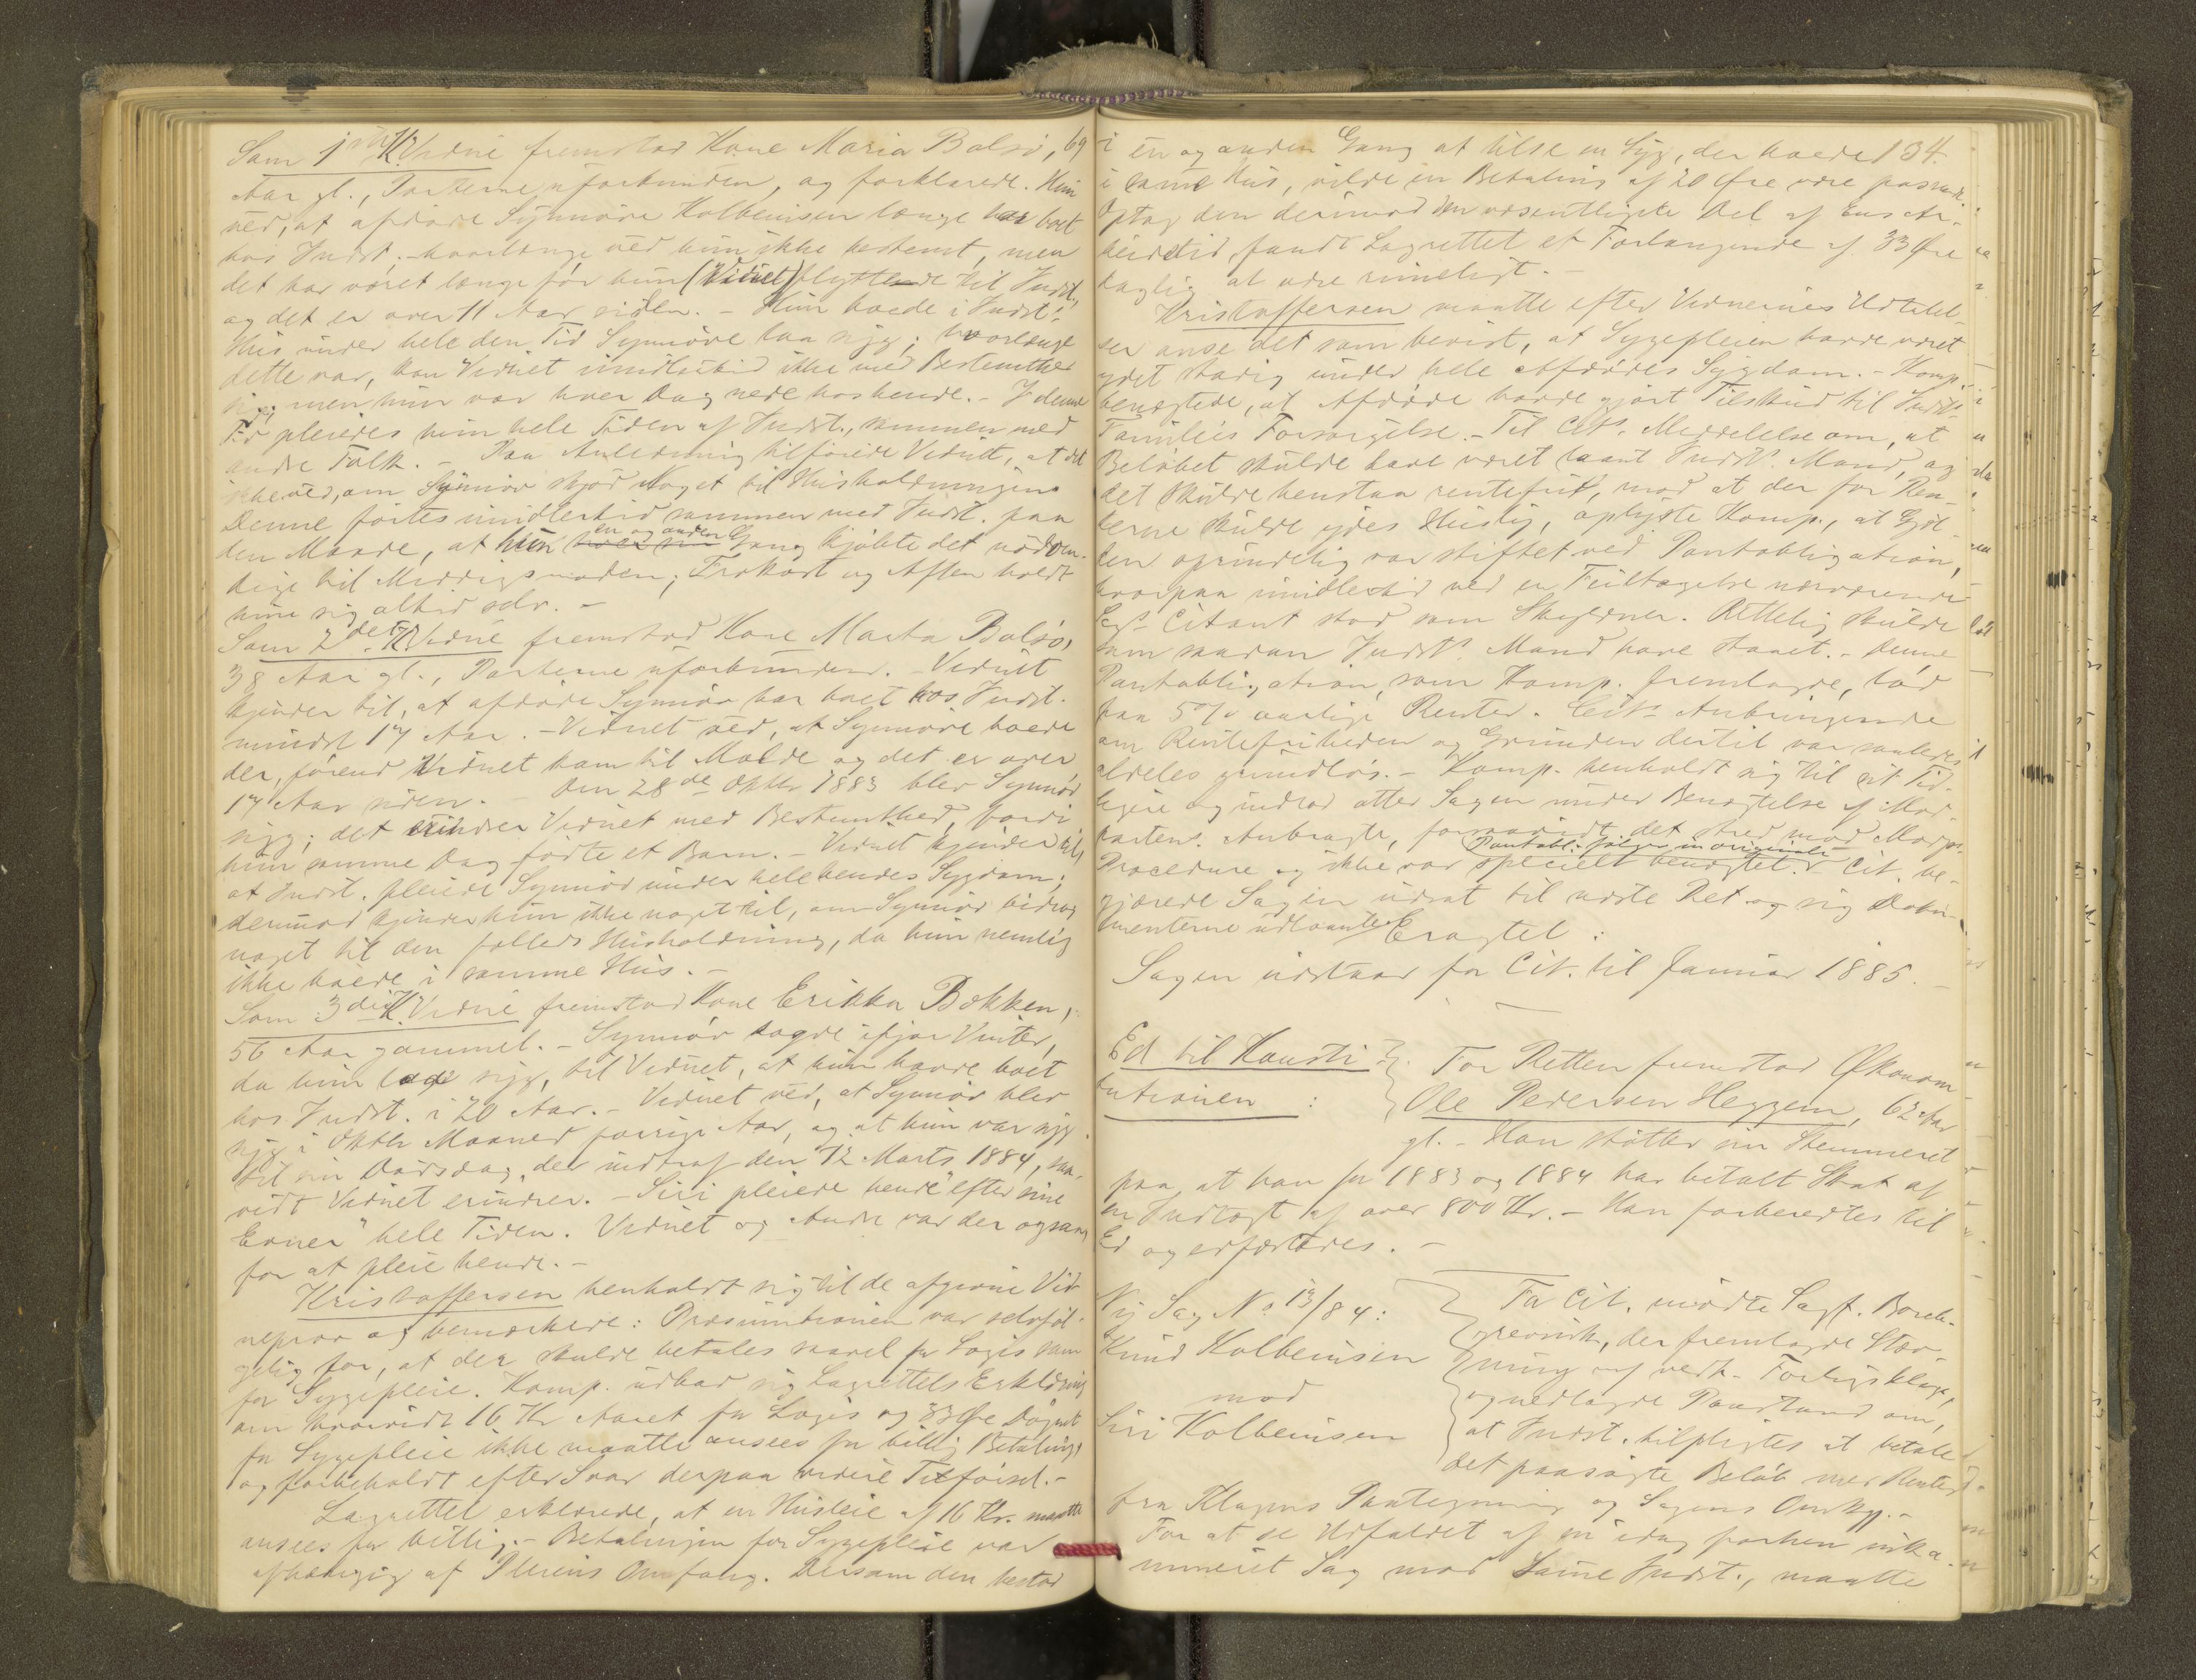 Som 1ste K.Vidne fremstod Kone Maria Bolsø, 69
Aar gl., Parterne uforbunden, og forklarede. Hun
véd, at afdøde Synnøve Kolbeinsen længe har boet
hos Indst., hvorlænge véd hun ikke bestemt, men
det har været længe før hun (Vidnet) flyttede til Indst.,
og det er over 11 Aar siden. - Hun boede i Indst.s
Hus under hele den Tid Synnøve laa syg; hvorlænge
dette var, kan Vidnet imidlertid ikke med Bestemthed
sige, men hun var hver Dag nede hos hende. - I denne
Tid pleiedes hun hele Tiden af Indst., sammen med
andre Folk. - Paa Anledning tilføiede Vidnet, at det
ikke véd, om Synnøv skjød Noget til Husholdningen.
Denne førtes imidlertid sammen med Indst. paa
den Maade, at hun en og anden Gang kjøbte det nødven-
dige til Middagsmaden; Frokost og Aften holdt
hun sig altid selv. -
Som 2det K.Vidne fremstod Kone Marta Bolsø,
38 Aar gl., Parterne uforbunden. - Vidnet
kjender til, at afdøde Synnøv har boet hos Indst.
mindst 17 Aar. - Vidnet véd, at Synnøve boede
der, førend Vidnet kom til Molde og det er over
17 Aar siden. - Den 28de Oktbr 1883 blev Synnøv
syg; det erindrer Vidnet med Bestemthed, fordi
hun samme Dag fødte et Barn. - Vidnet kjender til,
at Indst. pleiede Synnøv under hele hendes Sygdom;
derimod kjender hun ikke noget til, om Synnøv bidrog
noget til den fælleds Husholdning, da hun nemlig
ikke boede i samme Hus. -
Som 3die K.Vidne fremstod Kone Erikka Bakken,
56 Aar gammel. - Synnøv sagde ifjor Vinter,
da hun laa syg, til Vidnet, at hun havde boet
hos Indst. i 20 Aar. - Vidnet véd, at Synnøv blev
syg i Oktbr Maaned forrige Aar, og at hun var syg
til sin Dødsdag, der indtraf den 12 Marts 1884, saa-
vidt Vidnet erindrer. - Siri pleiede hende "efter sine
Evner" hele Tiden. Vidnet og Andre var der ogsaa
for at pleie hende. -
Kristoffersen henholdt sig til de afgivne Vid-
neprov og bemærkede: Præsumtionen var selvføl-
gelig for, at der skulde betales saavel for Logis som
for Sygepleie. Komp. udbad sig Lagrettets Erklæring
om hvorvidt 16 Kr Aaret for Logis og 33 Øre Døgnet
for Sygepleie ikke maatte ansees for billig Betaling,
og forbeholdt efter Svar derpaa videre Tilførsel. -
Lagrettet erklærede, at en Husleie af 16 Kr. maatte
ansees for billig. - Betalingen for Sygepleie var
afhængig af Pleiens Omfang. Dersom den bestod
134.
i én og anden Gang at tilse en Syg, der boede
i samme Hus, vilde en Betaling af 20 Øre være passende.
Optog den derimod den væsentligste Del af Ens Ar-
beidstid, fandt Lagrettet et Forlangende af 33 Øre
daglig at være rimeligt. -
Kristoffersen maatte efter Vidnernes Udtalel-
ser anse det som bevist, at Sygepleien havde været
ydet stadig under hele Afdødes Sygdom. - Komp.
benægtede, at Afdøde havde gjort Tilskud til Indst.s
Familiès Forsørgelse. - Til Cits. Meddelelse om, at
Beløbet skulde have været laant Indsts. Mand, og
det skulde henstaa rentefrit, mod at der for Ren-
terne skulde ydes Husly, oplyste Komp., at Gjæl-
den oprindelig var stiftet ved Pantobligation,
hvorpaa imidlertid ved en Feiltagelse nærværende
Sags Citant stod som Skyldner. Rettelig skulde
som saadan Indsts. Mand have staaet. - Denne
Pantobligation, som Komp. fremlagde, lød
paa 5% aarlige Renter. Cits. Anbringende
om Rentefriheden og Grunden dertil var saaledes
aldeles grundløs. - Komp. henholdt sig til sit Tid-
ligere og indlod atter Sagen under Benægtelse af Mod-
partens Anbragte, forsaavidt det stred mod Komps.
Procedure og ikke var specielt benægtet. Pantobl. følger in originali Cit. be-
gjærede Sagen udsat til næste Ret og sig Doku-
menterne udlaante. Eragtet:
Sagen udstaar for Cit. til Januar 1885. -
Ed til Konsti-
tutionen:
For Retten fremstod Økonom
Ole Pedersen Heggem, 62 Aar
gl. - Han støtter sin Stemmeret
paa, at han for 1883 og 1884 har betalt Skat af
en Indtægt af over 800 Kr. - Han forberedtes til
Ed og edfæstedes. -
Ny Sag No 13/84:
Knud Kolbeinsen
mod
Siri Kolbeinsen
For Cit. mødte Sagf. Borch-
grevink, der fremlagde Stæv-
ning og vedh. Forligsklage,
og nedlagde Paastand om,
at Indst. tilpligtes at betale
det paasøgte Beløb med Renter
fra Klagens Paategning og Sagens Omkg. -
For at se Udfaldet af en idag forhen inka-
mineret Sag mod samme Indst., maatte